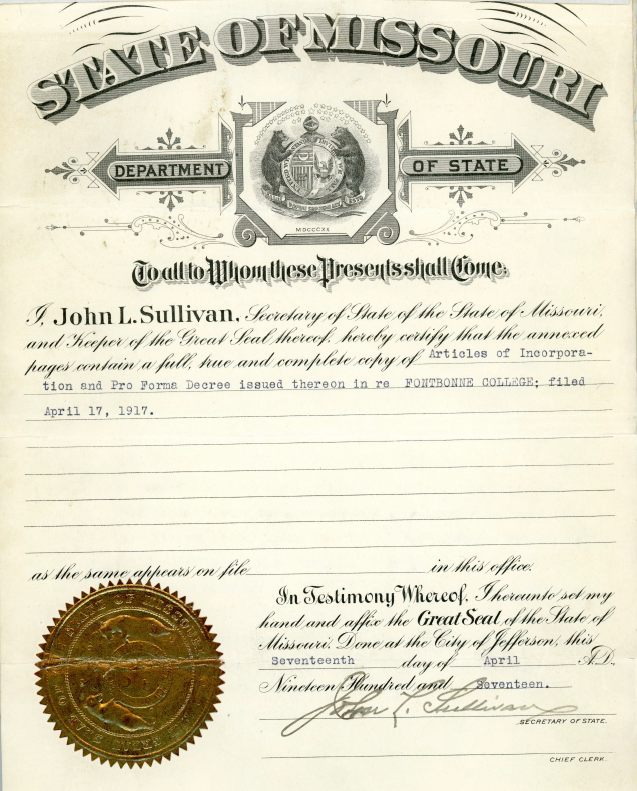 STATE OF MISSOURI
DEPARTMENT OF STATE
MDCCCXX
To all to Whom these Presents shall Come:
I, John L. Sullivan, Secretary of State of the State of Missouri,
and Keeper of the Great Seal thereof, hereby certify that the annexed
pages contain a full, true and complete copy of Articles of Incorpora-
tion and Pro Forma Decree issued thereon in re FONTBONNE COLLEGE; filed
April 17, 1917.
as the same appears on file in this office.
In Testimony Whereof, I hereunto set my
hand and affix the Great Seal of the State of
Missouri. Done at the City of Jefferson, this
Seventeenth day of April A.D.,
Nineteen Hundred and Seventeen.
John L. Sullivan
SECRETARY OF STATE.
CHIEF CLERK.